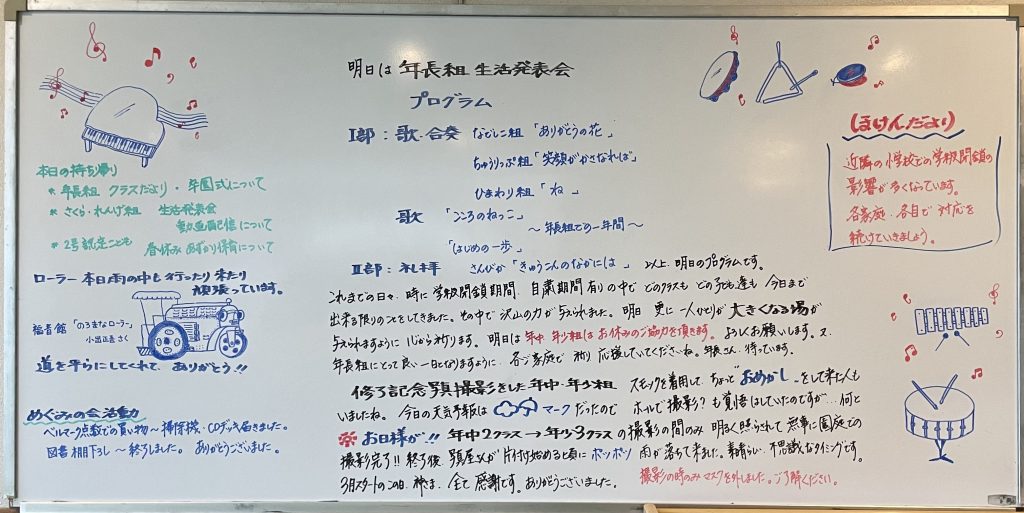 明日は 年長組 生活発表会
プログラム
Ⅰ部：歌・合奏 なでしこ組「ありがとうの花」
ちゅうりっぷ組「笑顔がかさなれば」
ひまわり組「ね」
歌 「こころのねっこ」
〜年長組での一年間〜
「はじめの一歩」
Ⅱ部：礼拝 さんびか「きゅうこんのなかには」 以上、明日のプログラムです。
これまでの日々、時に学級閉鎖期間、自粛期間有りの中で どのクラスも どの子ども達も 今日まで
出来る限りのことをしてきました。その中で 沢山の力が 与えられました。明日 更に 一人ひとりが 大きくなる場が
与えられますように 心から祈ります。明日は 年中 年少組は お休みのご協力を頂きます。よろしくお願いします。又、
年長組にとって良い一日となりますように、各ご家庭で 祈り 応援していてくださいね。年長さん、待っています。
修了記念写真撮影をした 年中・年少組 スモックを着用して、ちょっと"おめかし"をして来た人も
いましたね。今日の天気予報は マークだったので ホールで撮影？も覚悟はしていたのですが…何と
お日様が!! 年中2クラス→年少3クラスの撮影の間のみ 明るく照られて 無事に園庭での
撮影完了!! 終了後、写真屋さんが 片付け始める頃に ポッポツ 雨が落ちて来ました。素晴らしい、不思議なタイミングです。
3月スタートのこの日、神さま、全て 感謝です。ありがとうございました。
撮影の時のみ マスクを外しました。ご了解ください。
本日の持ち帰り
* 年長組 クラスだより・卒園式について
* さくら・れんげ組 生活発表会
動画配信について
* 2号認定こども 昼休みあずかり保育について
ローラー 本日雨の中も 行ったり 来たり
頑張っています。
福音館「のろまなローラー」
小出正吾 さく
道を平らにしてくれて、ありがとう!!
めぐみの会活動
ベルマーク点数での買い物〜掃除機・CDデッキ届きました。
図書 棚下ろし 〜終了しました。ありがとうございました。
ほけんだより
近隣の小学校での学級閉鎖の
影響が多くなっています。
各家庭、各自で 対応を
続けていきましょう。